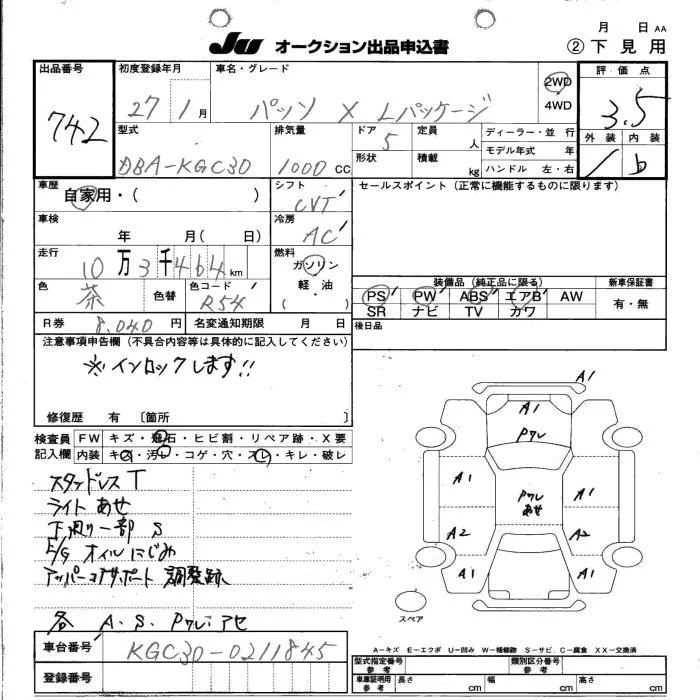 月 日 AA
JU オークション出品申込書 ② 下見用
出品番号 初度登録年月 車名・グレード 評価点
742 27年1月 パッソ X Lパッケージ 2WD 3.5
4WD
型式 排気量 ドア 定員 ディーラー・並行 外装 内装
DBA-KGC30 1000CC 5 人 モデル年式 年 b
形状 積載 kg ハンドル 左・右
車歴 シフト セールスポイント (正常に機能するものに限ります)
自家用・( ) CVT
車検 冷房
年 月( 日) AC
走行 燃料
10万3千464km ガソリン
色 色替 色コード 軽油
茶 R54 ・( )
装備品 (純正品に限る) 新車保証書
PS PW ABS エアB AW 有・無
SR ナビ TV カワ
R券 8,040円 名変通知期限 月 日 後日品
注意事項申告欄 (不具合内容等は具体的に記入してください)
※インロックします!!
修復歴 有 〔箇所 〕
検査員 FW キズ・飛石・ヒビ割・リペア跡・X要
記入欄 内装 キズ・汚レ・コゲ・穴・スレ・キレ・破レ
スタッドレスT
ライトあせ
下廻り一部S
E/Gオイルにじみ
アッパーコアサポート 調整跡
各 A.S.Pクレ.アセ
A1
A1
Pクレ
A1 A1
Pクレ
あせ
A2 A2
A1 A1
スペア
A-キズ E-エクボ U-凹み W-補修跡 S-サビ C-腐食 XX-交換済
車台番号 KGC30-0211845
登録番号
型式指定番号 参考 類別区分番号 参考
車庫証明用 参考 長さ cm 幅 cm 高さ cm